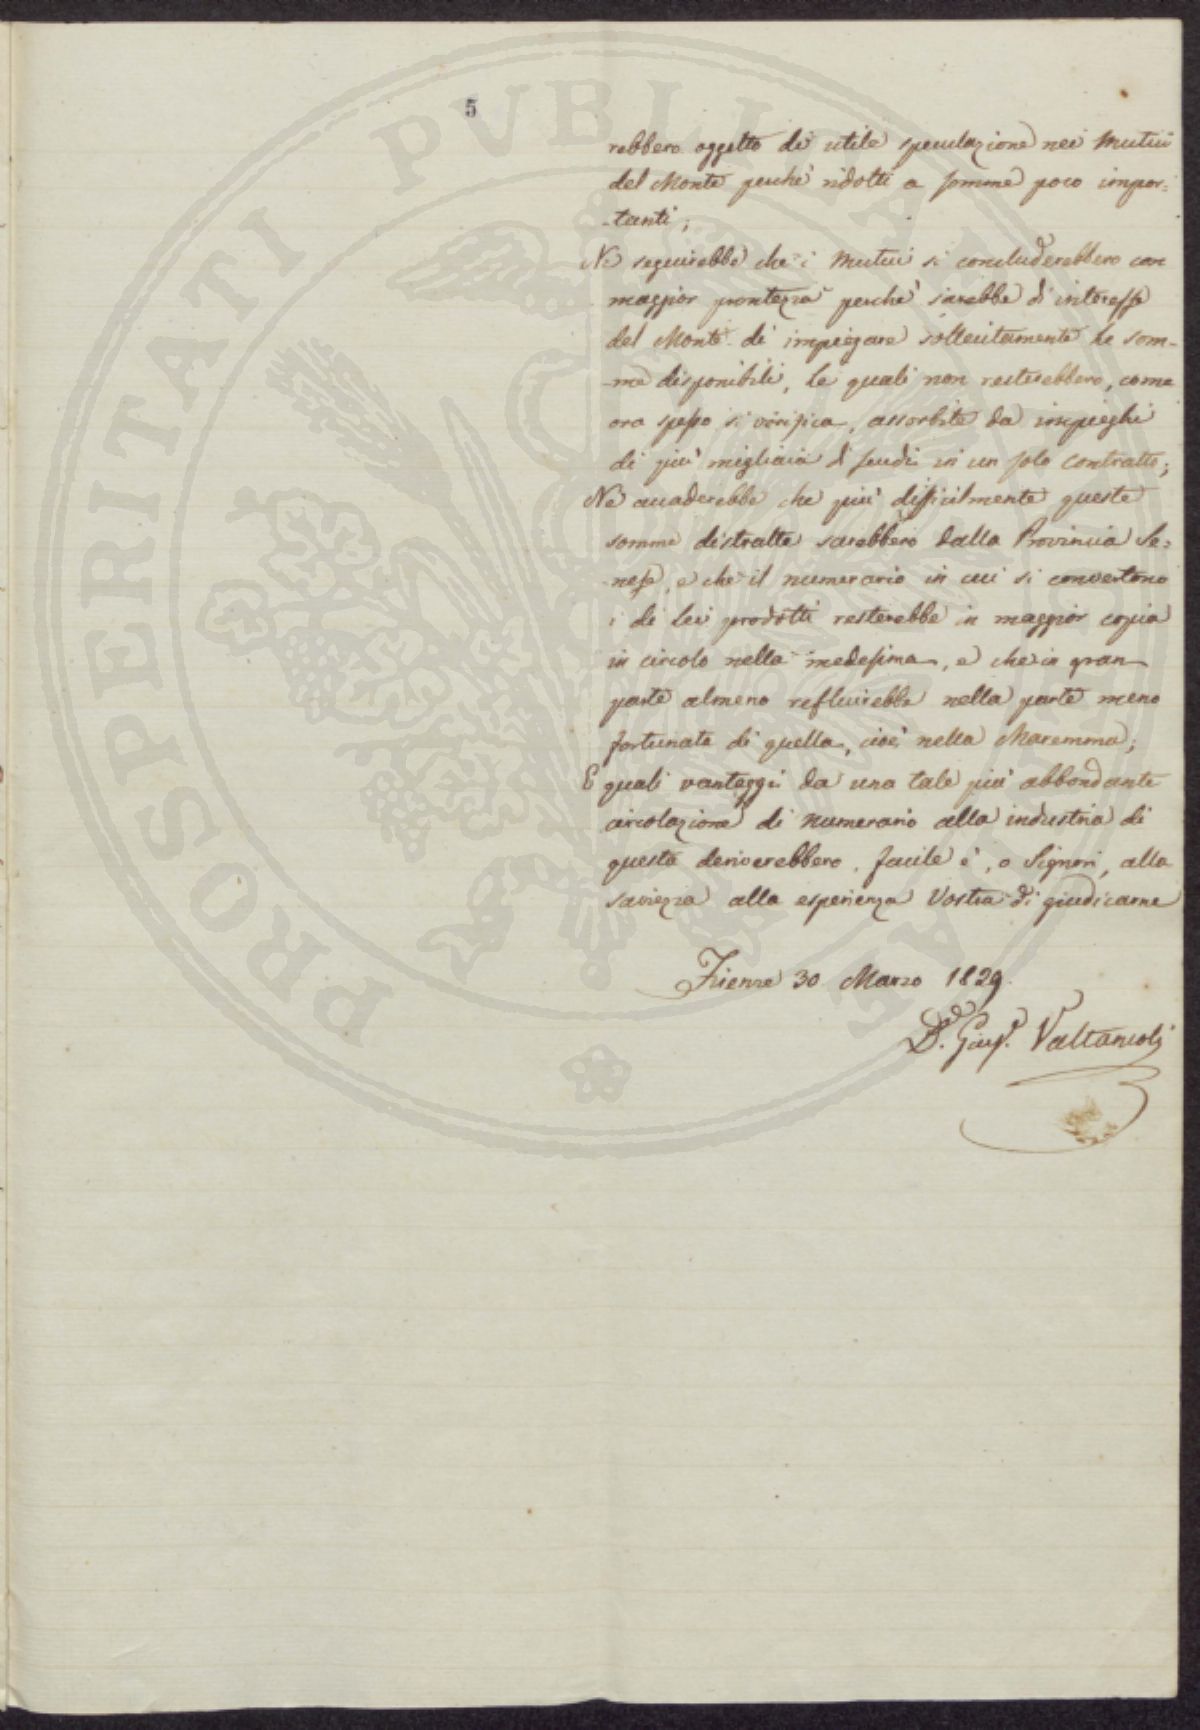 5
PROSPERITATI PVBLICAE
rebbero oggetto di utile speculazione nei Mutui
del Monte perchè ridotti a somme poco impor=
-tanti;
Ne seguirebbe che i Mutui si concluderebbero con
maggior prontezza perchè sarebbe di interesse
del Monte di impiegare sollecitamente le som-
-me disponibili, le quali non resterebbero, come
ora spesso si verifica, assorbite da impieghi
di più migliaia di scudi in un solo contratto;
Ne accaderebbe che più difficilmente queste
somme distratte sarebbero dalla Provincia Se=
-nese, e che il numerario in cui si convertono
i di lei prodotti resterebbe in maggior copia
in circolo nella medesima, e che in gran
parte almeno refluirebbe nella parte meno
fortunata di quella, cioè nella Maremma;
E quali vantaggi da una tale più abbondante
circolazione di numerario alla industria di
questa deriverebbero, facile è, o Signori, alla
saviezza alla esperienza Vostra di giudicarne
Firenze 30 Marzo 1829.
D. Giusp.e Valtancoli